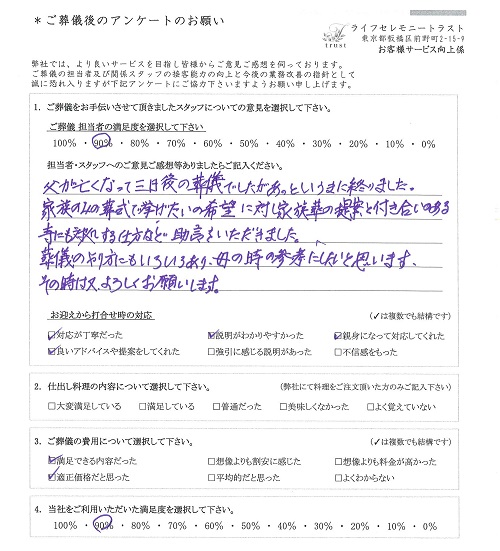 ＊ご葬儀後のアンケートのお願い
trust
ライフセレモニートラスト
東京都板橋区前野町2-15-9
お客様サービス向上係
弊社では、より良いサービスを目指し皆様からご意見ご感想を伺っております。
ご葬儀の担当者及び関係スタッフの接客能力の向上と今後の業務改善の指針として
誠に恐れ入りますが下記アンケートにご協力下さいますようお願い申し上げます。
1. ご葬儀をお手伝いさせて頂きましたスタッフについての意見を選択して下さい。
ご葬儀 担当者の満足度を選択して下さい
100% ・ 90% ・ 80% ・ 70% ・ 60% ・ 50% ・ 40% ・ 30% ・ 20% ・ 10% ・ 0%
担当者・スタッフへのご意見ご感想等ありましたらご記入ください。
父が亡くなって三日後の葬儀でしたがあっというまに終りました。
家族のみの葬式で挙げたいの希望に対し家族葬の提案と付き合いのある
寺にも交渉する仕方など助言をいただきました。
葬儀のやり方にもいろいろあり、母の時の参考にしたいと思います。
その時は又、よろしくお願いします。
お迎えから打合せ時の対応 (✓は複数でも結構です)
☑対応が丁寧だった ☑説明がわかりやすかった ☑親身になって対応してくれた
☑良いアドバイスや提案をしてくれた □強引に感じる説明があった □不信感をもった
2. 仕出し料理の内容について選択して下さい。 (弊社にて料理をご注文頂いた方のみご記入下さい)
□大変満足している □満足している □普通だった □美味しくなかった □よく覚えていない
3. ご葬儀の費用について選択して下さい。 (✓は複数でも結構です)
☑満足できる内容だった □想像よりも割安に感じた □想像よりも料金が高かった
☑適正価格だと思った □平均的だと思った □よくわからない
4. 当社をご利用いただいた満足度を選択して下さい。
100% ・ 90% ・ 80% ・ 70% ・ 60% ・ 50% ・ 40% ・ 30% ・ 20% ・ 10% ・ 0%